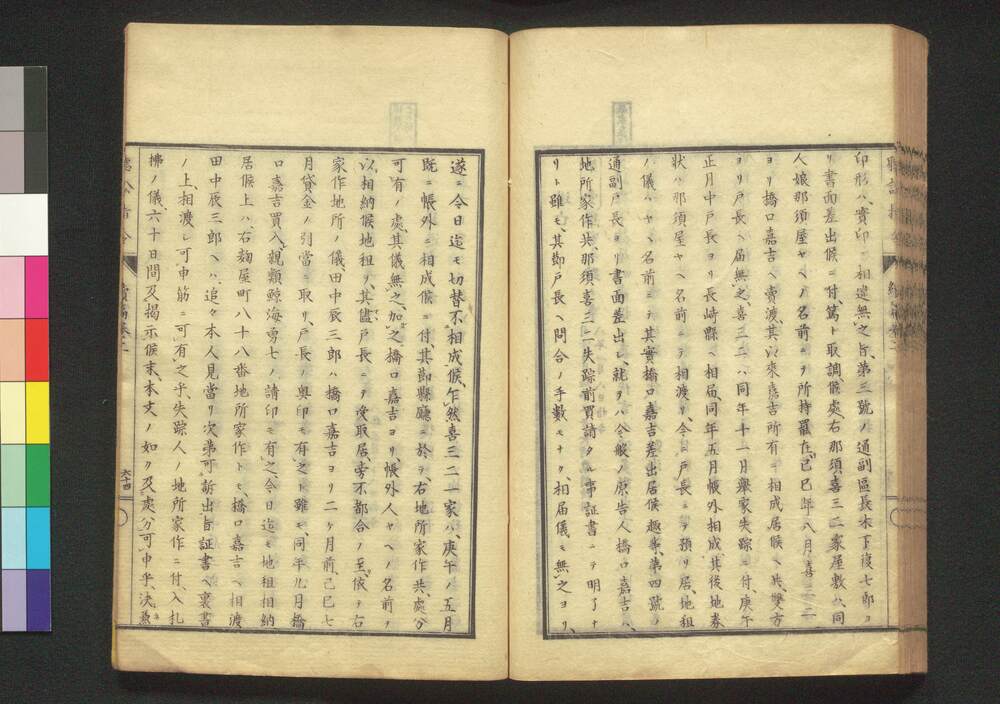 印形ハ、實印ニ相違無之旨、第三號ノ通副區長木下復七郎ヨ
リ書面差出候ニ付、篤ト取調候處、右那須喜三二家屋敷ハ、同
人娘那須屋ヤヘノ名前ニテ所持罷在、己巳年八月、喜三二
ヨリ橋口嘉吉ヘ賣渡、其以來嘉吉所有ニ相成居候ヘ共、雙方
ヨリ戸長ヘ届無之、喜三二ハ同年十一月擧家失踪ニ付、庚午
正月中戸長ヨリ長崎縣ヘ相届、同年五月帳外相成、其後地券
状ハ那須屋ヤヘ名前ニテ相渡リ、今ニ戸長ニテ預リ居、地租
ノ儀ハヤヘ名前ニテ其實橋口嘉吉差出居候趣等、第四號ノ
通副戸長ヨリ書面差出シ、就テハ今般ノ原告人橋口嘉吉ハ、
地所家作共、那須喜三二失踪前買請タル事証書ニテ明了ナ
リト雖モ、其節戸長ヘ問合ノ手數モナク、相届儀モ無之ヨリ、
遂ニ今日迄モ切替不相成候、乍然喜三二一家ハ、庚午ノ五月
既ニ帳外ニ相成候ニ付、其節縣廳ニ於テ、右地所家作共、處分
可有ノ處、其儀無之、加之橋口嘉吉ヨリ、帳外人ヤヘノ名前ヲ
以、相納候地租ヲ、其儘戸長ニテ受取居、旁不都合ノ至、依テ右
家作地所ノ儀、田中辰三郎ハ橋口嘉吉ヨリ二ヶ月前、己巳七
月貸金ノ引當ニ取リ、戸長ノ奥印モ有之ト雖モ、同年九月橋
口嘉吉買入、親類鯨海勇七ノ請印モ有之、今日迄モ地租相納
居候上ハ、右麹屋町八十八番地所家作トモ、橋口嘉吉ヘ相渡、
田中辰三郎ヘハ、追々本人見當リ次第可訴出旨証書ヘ裏書
ノ上、相渡シ可申筋ニ可有之乎、失踪人ノ地所家作ニ付、入札
拂ノ儀六十日間及揭示候末、本文ノ如ク及處分可申乎、決兼
六十四